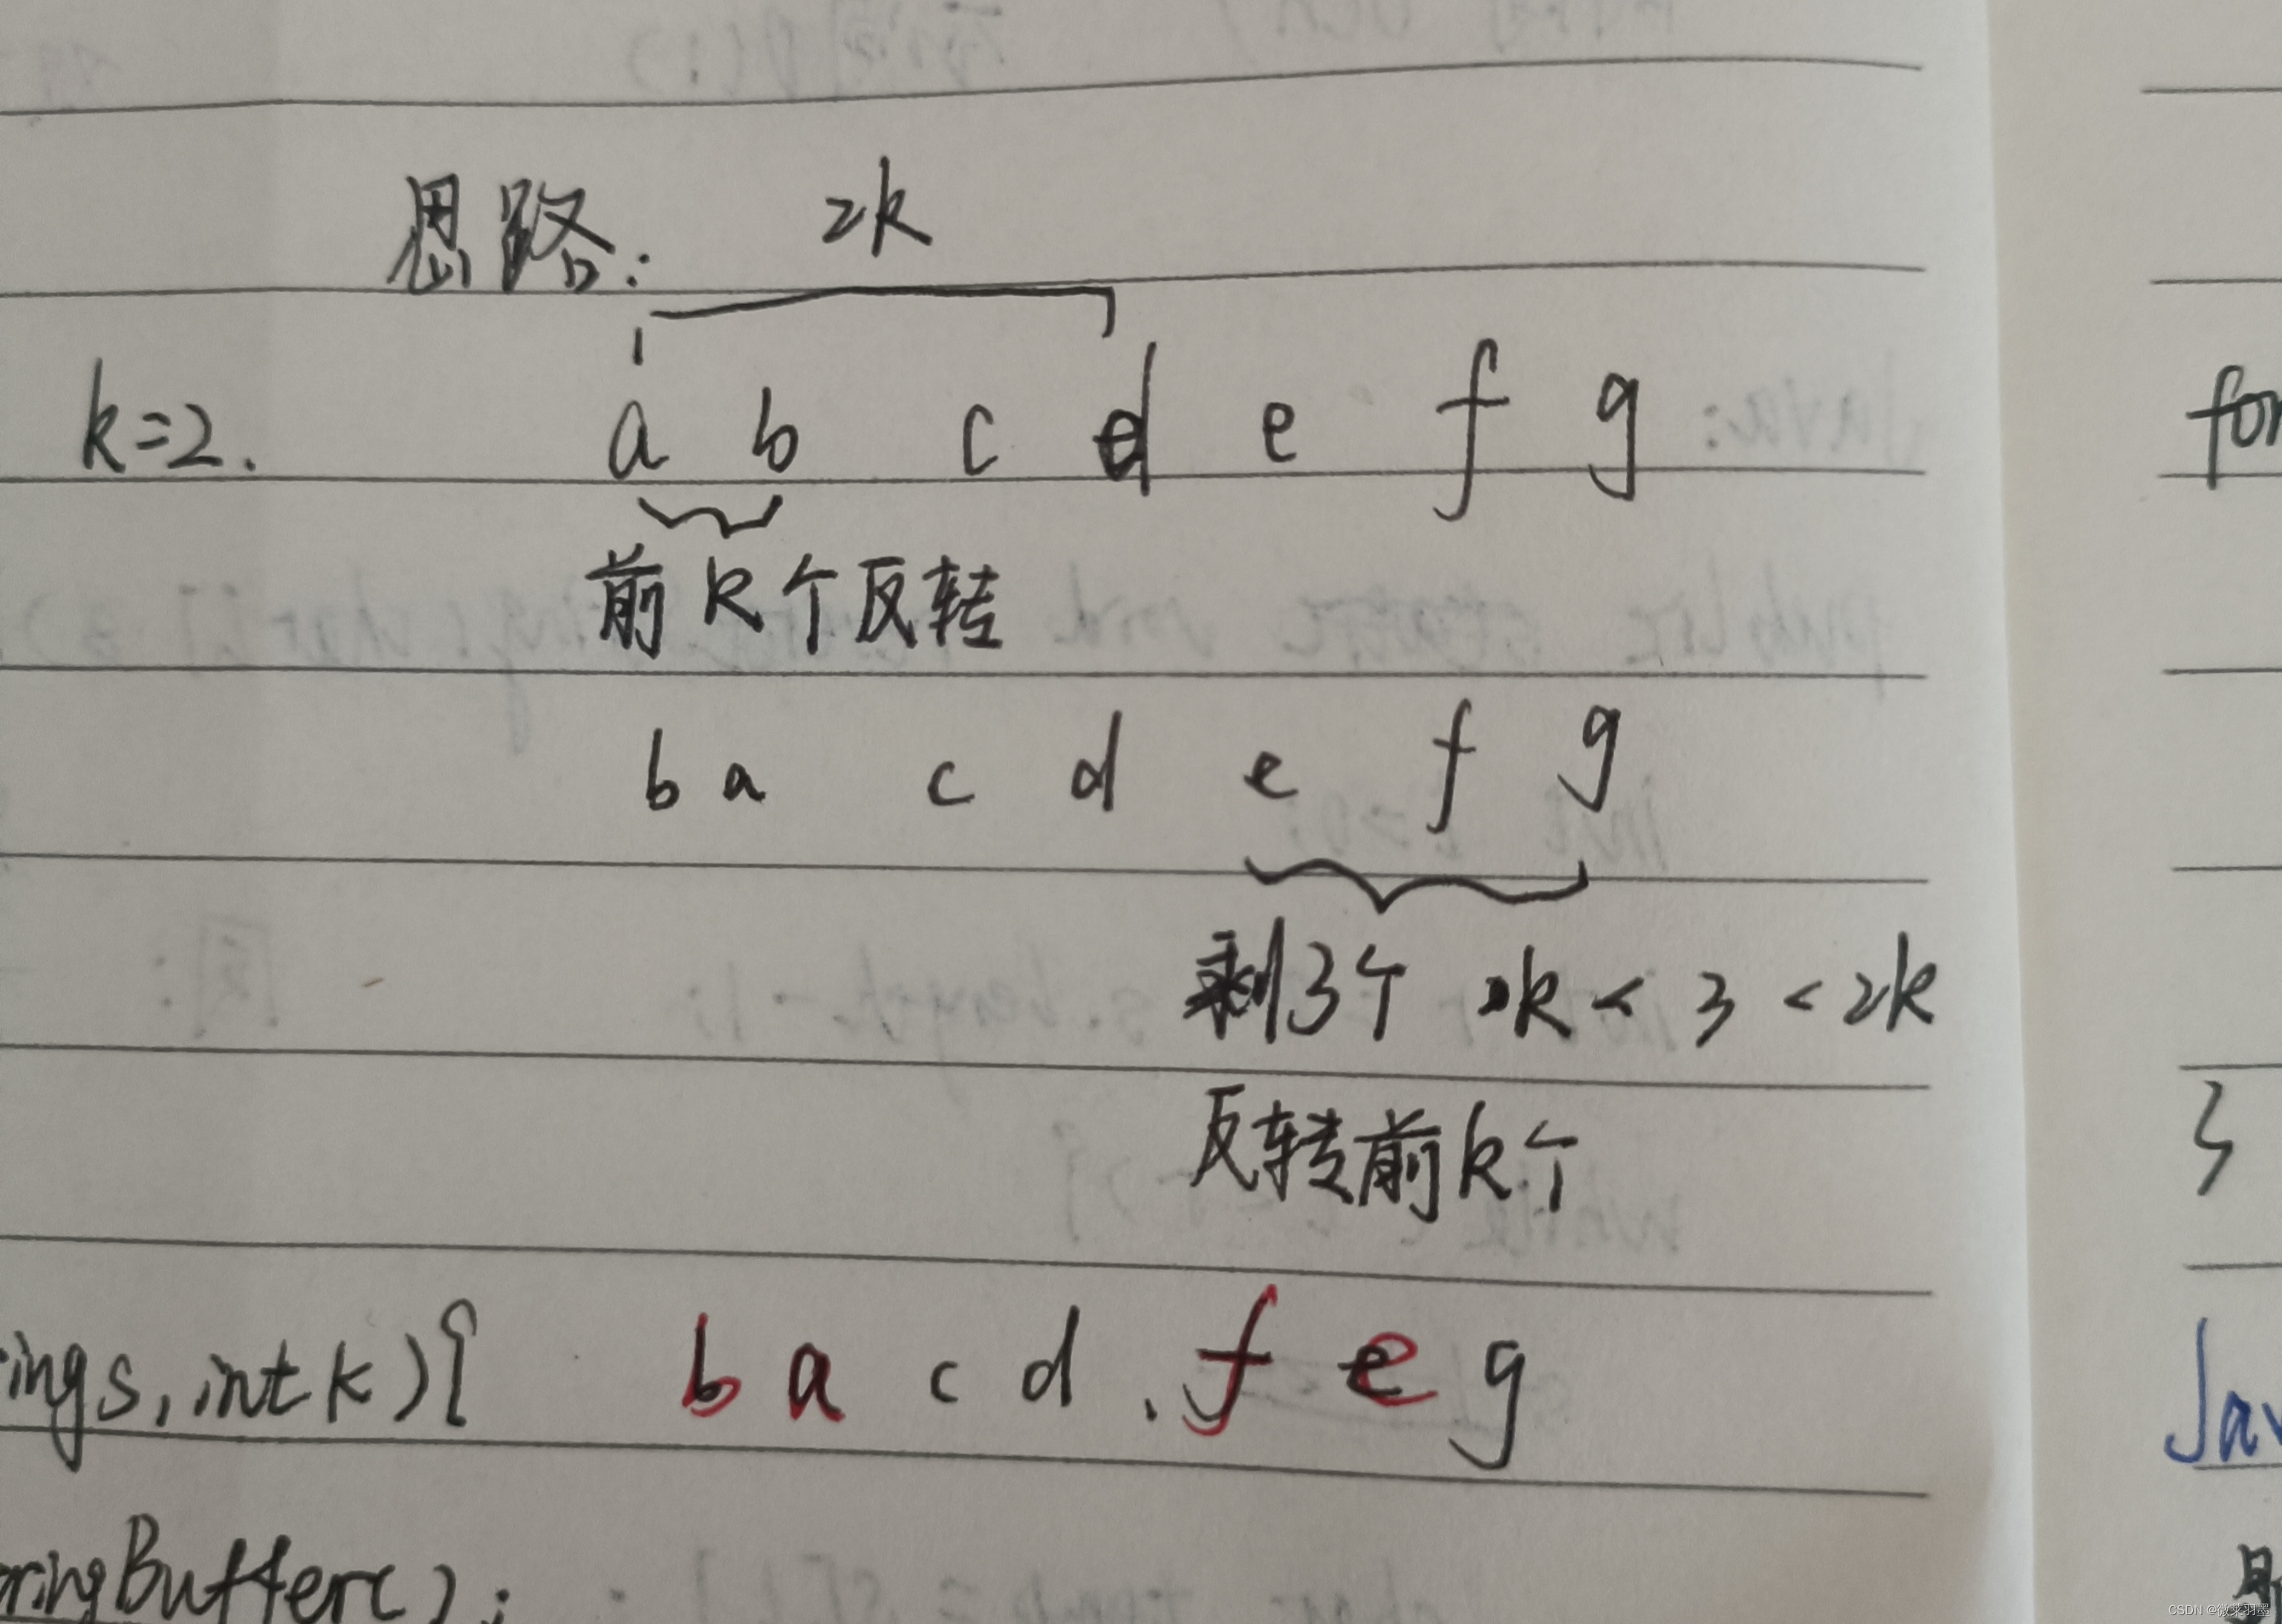 思路: 2k
k=2. a b c d e f g
前k个反转
b a c d e f g
剩3个 k < 3 < 2k
反转前k个
ings,intk){ b a c d . f e g
ringBuffer();
for
}
Jav
CSDN @微来羽墨